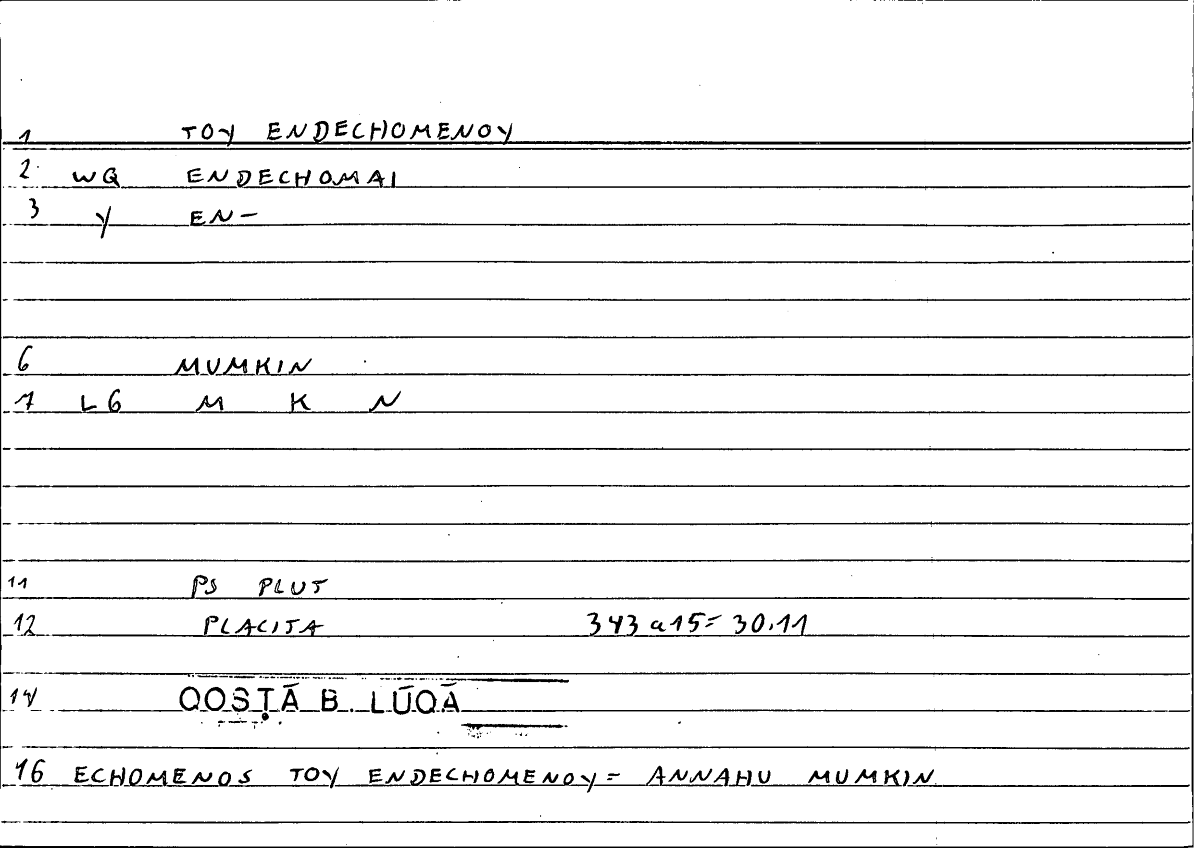 1 TOY ENDECHOMENOY
2 WQ ENDECHOMAI
3 Y EN-
6 MUMKIN
7 L6 M K N
11 PS PLUT
12 PLACITA 343a15= 30.11
14 QOSṬĀ B. LŪQĀ
16 ECHOMENOS TOY ENDECHOMENOY= ANNAHU MUMKIN